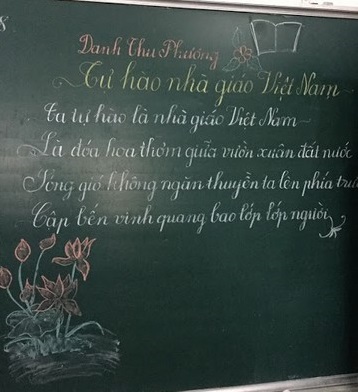 Danh Thu Phương
Tự hào nhà giáo Việt Nam
Ta tự hào là nhà giáo Việt Nam
Là đóa hoa thơm giữa vườn xuân đất nước
Sóng gió không ngăn thuyền ta lên phía trướ
Cập bến vinh quang bao lớp lớp người